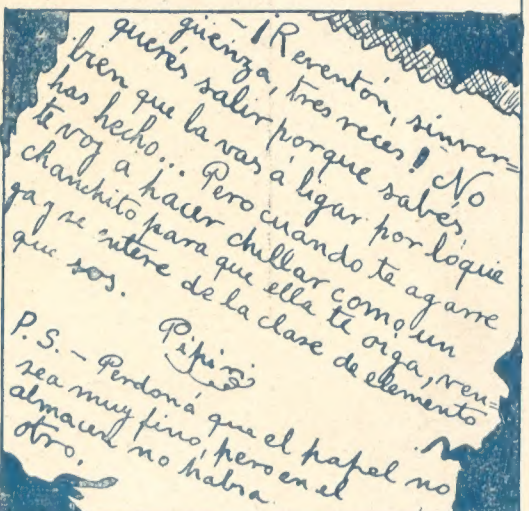 —¡Reventón, sinver=
güenza, tres veces! No
querés salir porque sabés
bien que la vas á ligar por lo que
has hecho... Pero cuando te agarre
te voy a hacer chillar como un
chanchito para que ella te oiga, ven=
ga y se entere de la clase de elemento
que sos.
Pipiri
P.S. — Perdoná que el papel no
sea muy fino, pero en el
almacen no habia
otro.